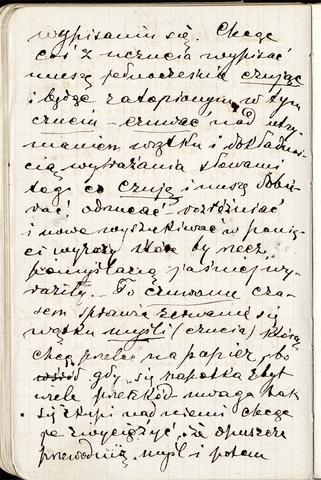 wypisaniu się. Chcąc
coś z uczucia wypisać
muszę jednocześnie czując
i będąc zatopionym w tym
czuciu – czuwać nad utrzy
maniem wątku i dokładnoś
cią wyrażania słowami
tego co czuję i muszę dobie
rać odrzucać – rozróżniać
i nowe wyszukiwać w pamię
ci wyrazy które by rzecz
pomyślaną jaśniej wy
raziły. – To czuwanie cza
sem sprawia zerwanie się
wątku myśli (czucia) którą
chcę przelać na papier, bo
gdy się napotka zbyt
wiele przeszkód uwaga tak
się skupi nad niemi chcąc
je zwyciężyć, że opuszcza
przewodnią myśl i potem